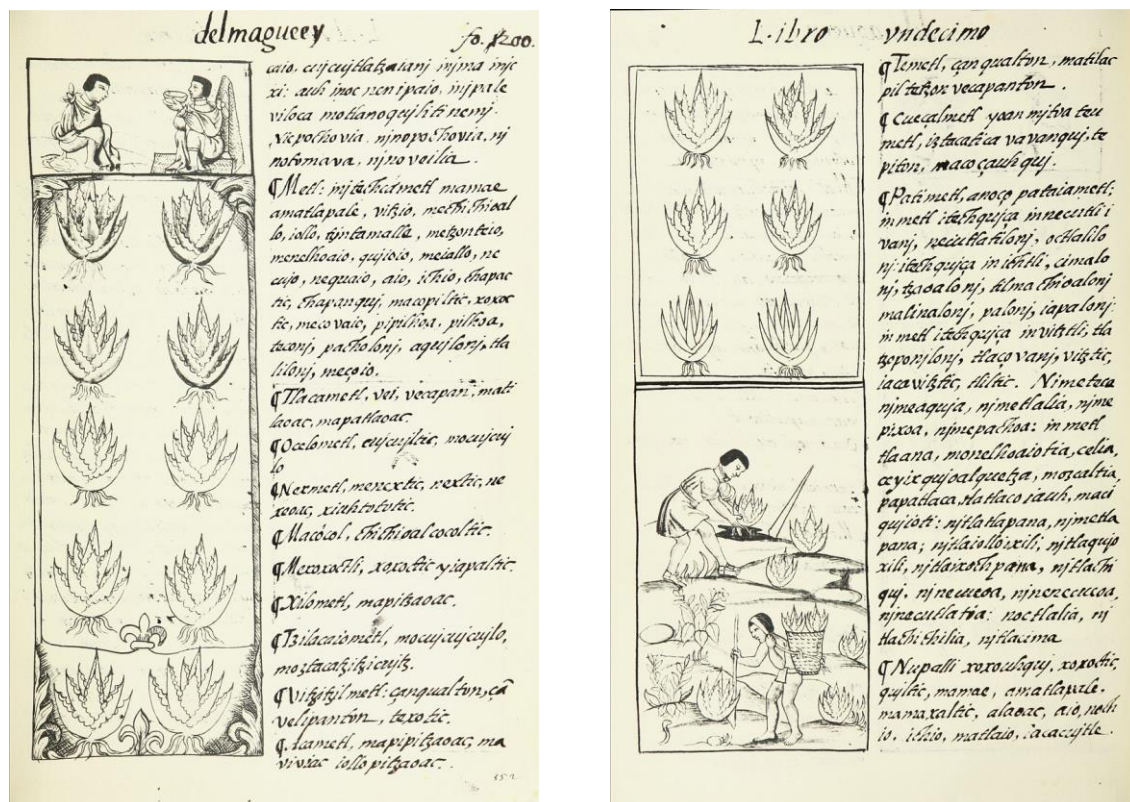 del maguey
fo. 200.
caio, cujcujtlatzaianj injma injc
xi: auh inoc nenipaio, injpale
viloca motlanoqujliti nemj.
Nepochovia, njnopochovia, nj
notomava, njnovoilia.
¶Metl: injtechcametl mamae
amatlapale, vitzio, mechichioal
lo, iollo, tzintamalla, metzonteio,
menelhoaio, qujoio, meiallo, ne
cujo, nequaio, aio, ichio, chapac
tic, chapanquj, macopiltic, xoxoc
tic, mecovaio, pipilhoa, pilhoa,
toconj, pacholonj, aqujlonj, tla
lilonj, meçoio.
¶Tlacametl, vei, vecapan, mati
laoac, mapatlaoac.
¶Ocelometl, cujcujltic, mocujcuj
lo
¶Nexmetl, menextic, nextic, ne
xeoac, xiuhtototic.
¶Macòcol, chichioalcocoltic.
¶Mexoxoctli, xoxoctic yiapaltic.
¶Xilometl, mapitzaoac.
¶Tzilacaiometl, mocujcujcujlo,
moztacatzitzicujtz.
¶Vitzitzilmetl: çanqualton, çā
velipanton, texotic.
¶Acametl, mapipitzaoac, ma
viviac iollopitzaoac.
352
Libro vndecimo
¶Temetl, çan qualton, matilac
pil tetzon vecapanton.
¶Cuecalmetl yoan mitva teu
metl, iztacatica vavanquj, te
piton, macoçauhquj.
¶Patimetl, anoço pataiametl:
in metl itechqujça innecutli i
vanj, necutlatilonj, octlalilo
nj: itechqujça in ichtli, cimalo
nj, tzaoalonj, tilmachioalonj
malinalonj, palonj, iapalonj:
in metl itechqujça invitztli, tla
tzeponjlonj, tlaçovanj, vitztic,
iacavitztic, tliltic. Nimeteca
njmeaquja, njmetlalia, njme
pixoa, njmepachoa: in metl
tlaana, monelhoaiotia, celia,
ceyixqujoalquetza, mozcaltia,
papatlaca, tlatlaco iauh, maci
qujioti: njtlatlapana, njmetla
pana; njtlaiolloixili, njtlaqujo
xili, njtlaixochpana, njtlachi
quj, njnecucoa, njnenecucoa,
njnecutlatia: noctlalia, nj
tlachichilia, njtlacima
¶Nupalli xoxouhquj, xoxoctic,
quiltic, mamae, amatlapale.
mamaxaltic, alaoac, aio, noch
io. ichio, matlaio,